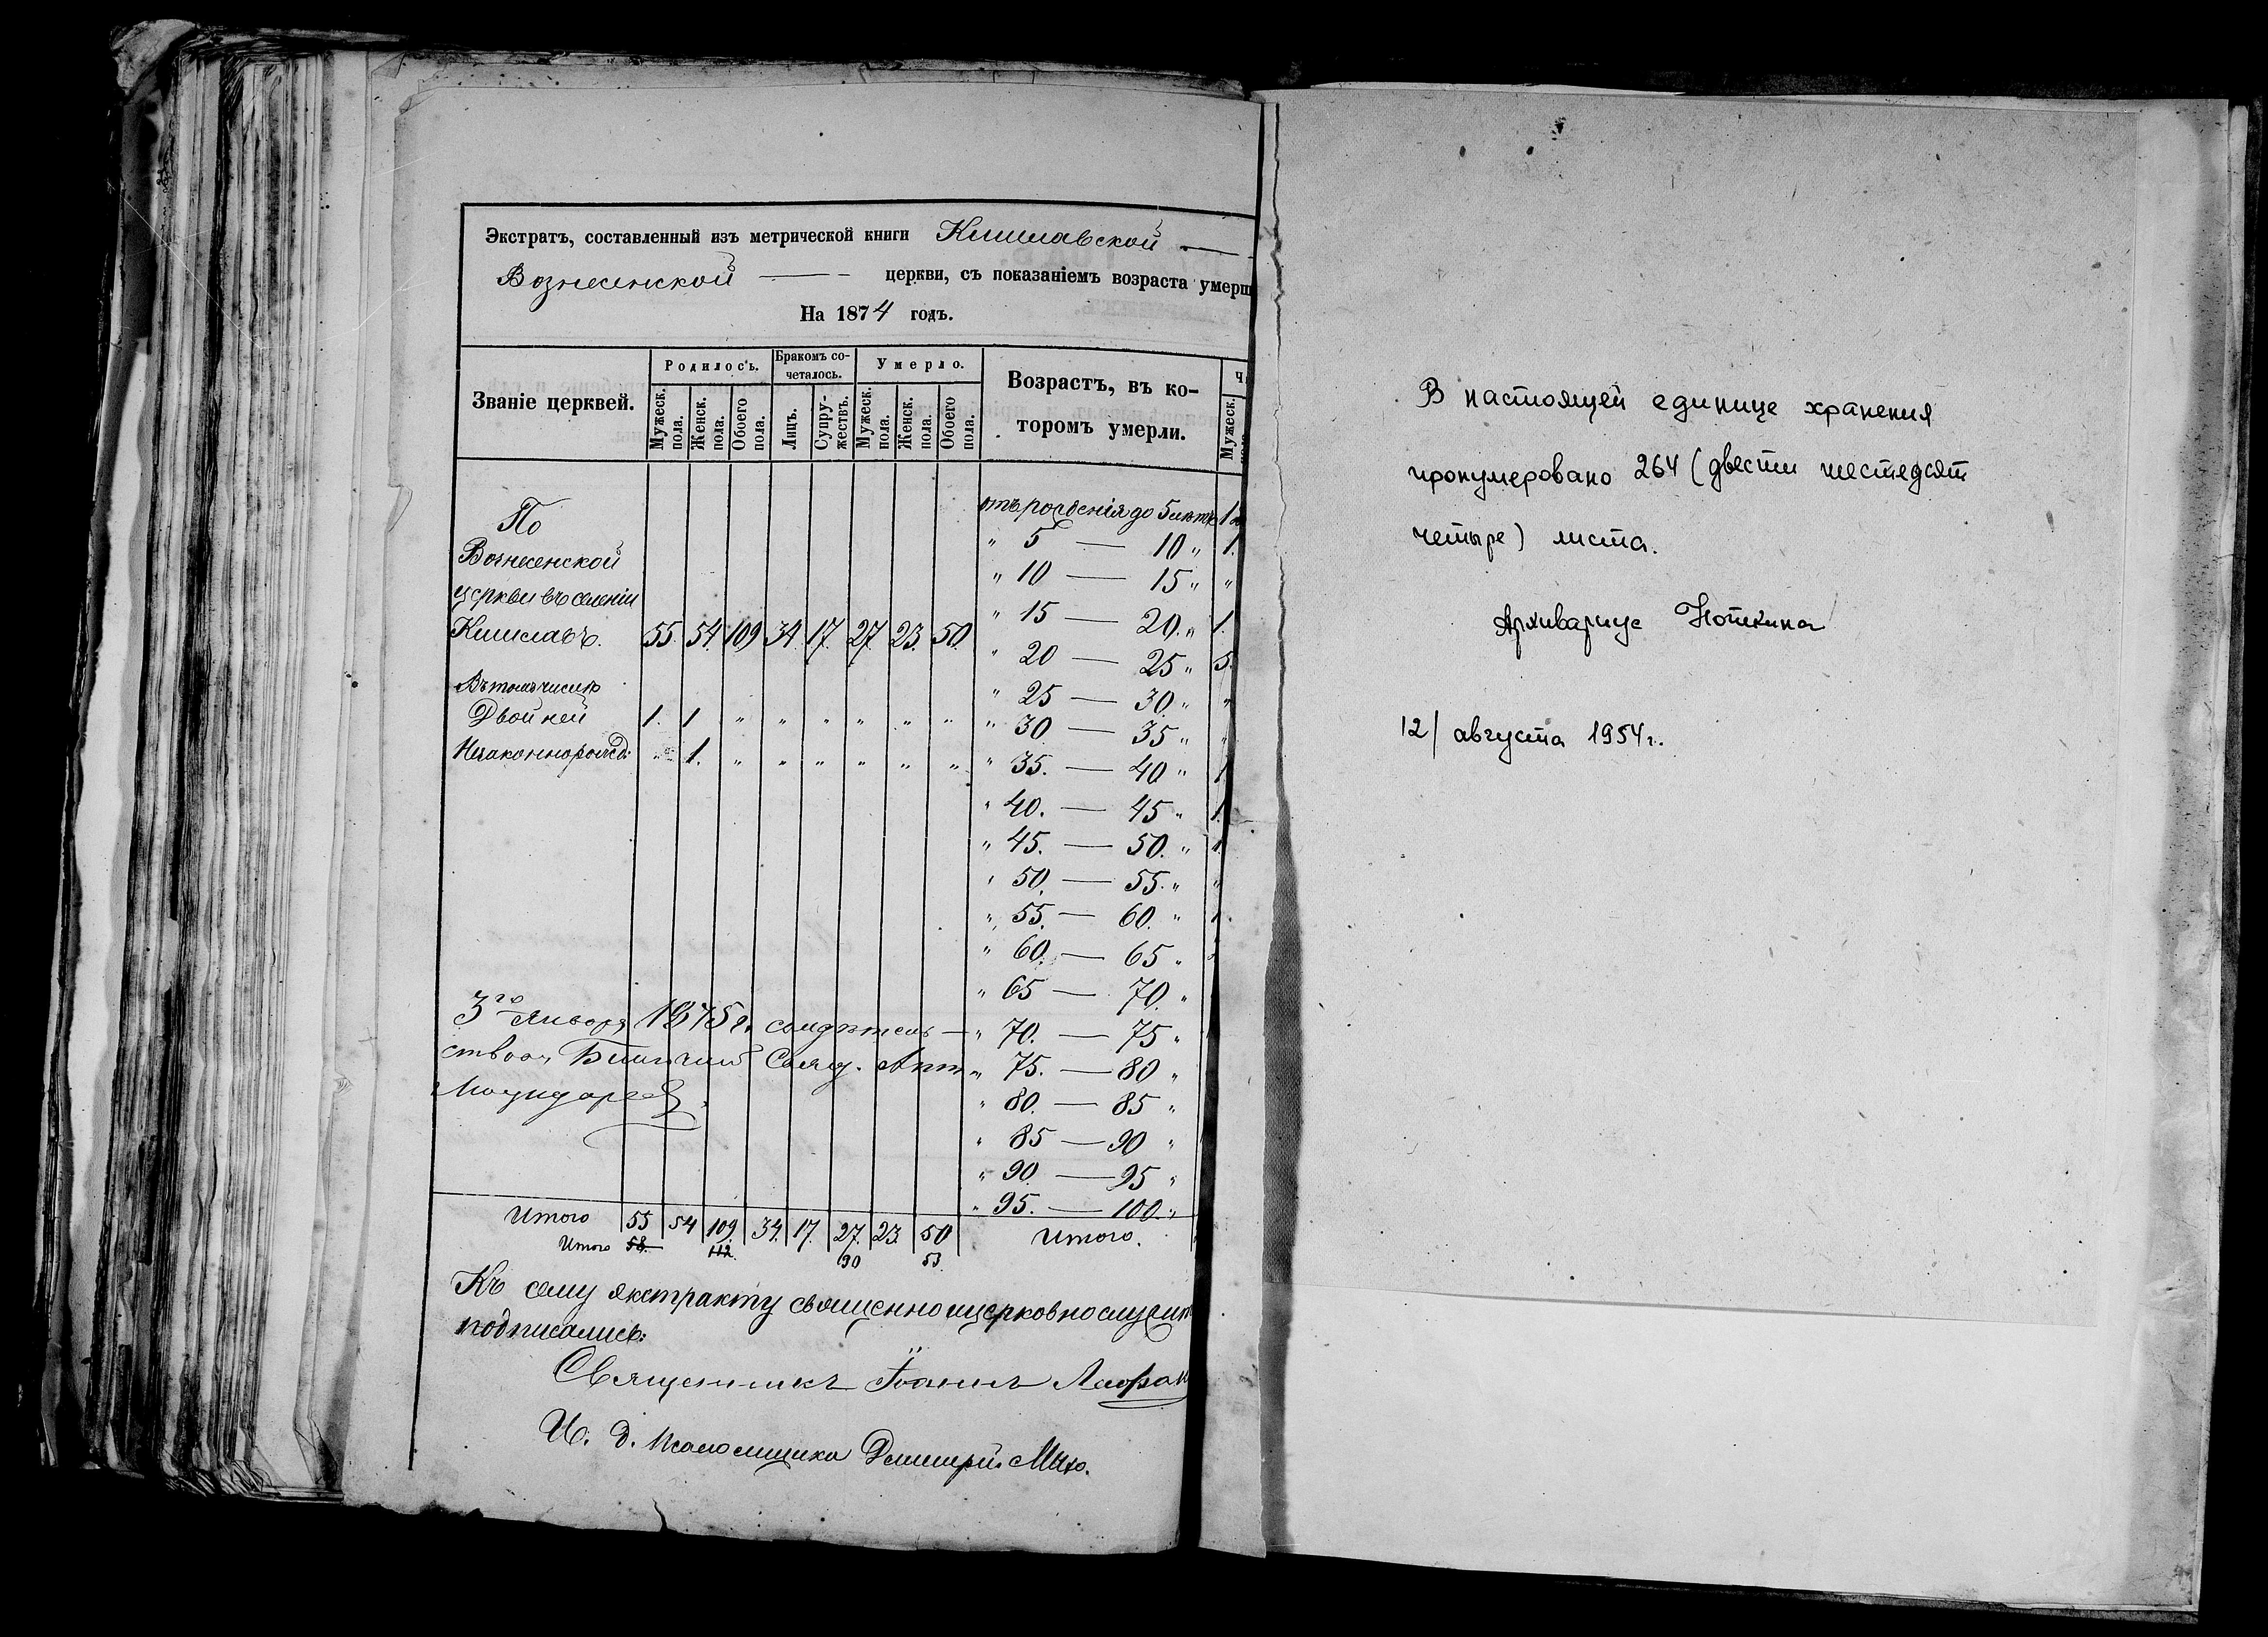 Экстратъ, составленный изъ метрической книги Кишлавской
Вознесенской церкви, съ показаніемъ возраста умерш
На 1874 годъ.
Званіе церквей.
Родилось.
Бракомъ со-
четалось.
Умерло.
Возрастъ, въ ко-
торомъ умерли.
Ч
Мужеск. пола.
Женск. пола.
Обоего пола.
Лицъ.
Супру-
жествъ.
Мужеск. пола.
Женск. пола.
Обоего пола.
Мужеск.
По
Вознесенской
церкви въ селеніи
Кишлавъ. 55. 54. 109 34. 17. 27. 23. 50.
Въ томъ числѣ
Двойней 1. 1 " " " " " "
Незаконнорожд: " 1. " " " " " "
отъ рожденія до 5 лѣтъ
" 5 — 10 " 1.
" 10 — 15 " "
" 15 — 20. " 1.
" 20 — 25 " 5.
" 25 — 30. " "
" 30 — 35 " "
" 35. — 40 " 1
" 40. — 45 " 1.
" 45. — 50. " 1.
" 50. — 55. " "
" 55. — 60. " 1.
" 60. — 65 "
" 65 — 70. "
" 70. — 75 "
" 75. — 80 "
" 80. — 85 "
" 85 — 90 "
" 90. — 95 "
" 95. — 100. "
3го Января 1875 г. свидѣтель-
ствов.
Итого 55 54 109. 34. 17. 27. 23. 50 Итого.
Итого 58. 112. 30 53
Къ сему экстракту священноицерковнослужит
подписались:
Священникъ Іоаннъ
И. д. Псаломщика Димитрій
В настоящей единице хранения
пронумеровано 264 (двести шестедсят
четыре) листа.
Архивариус
12/ августа 1954 г.